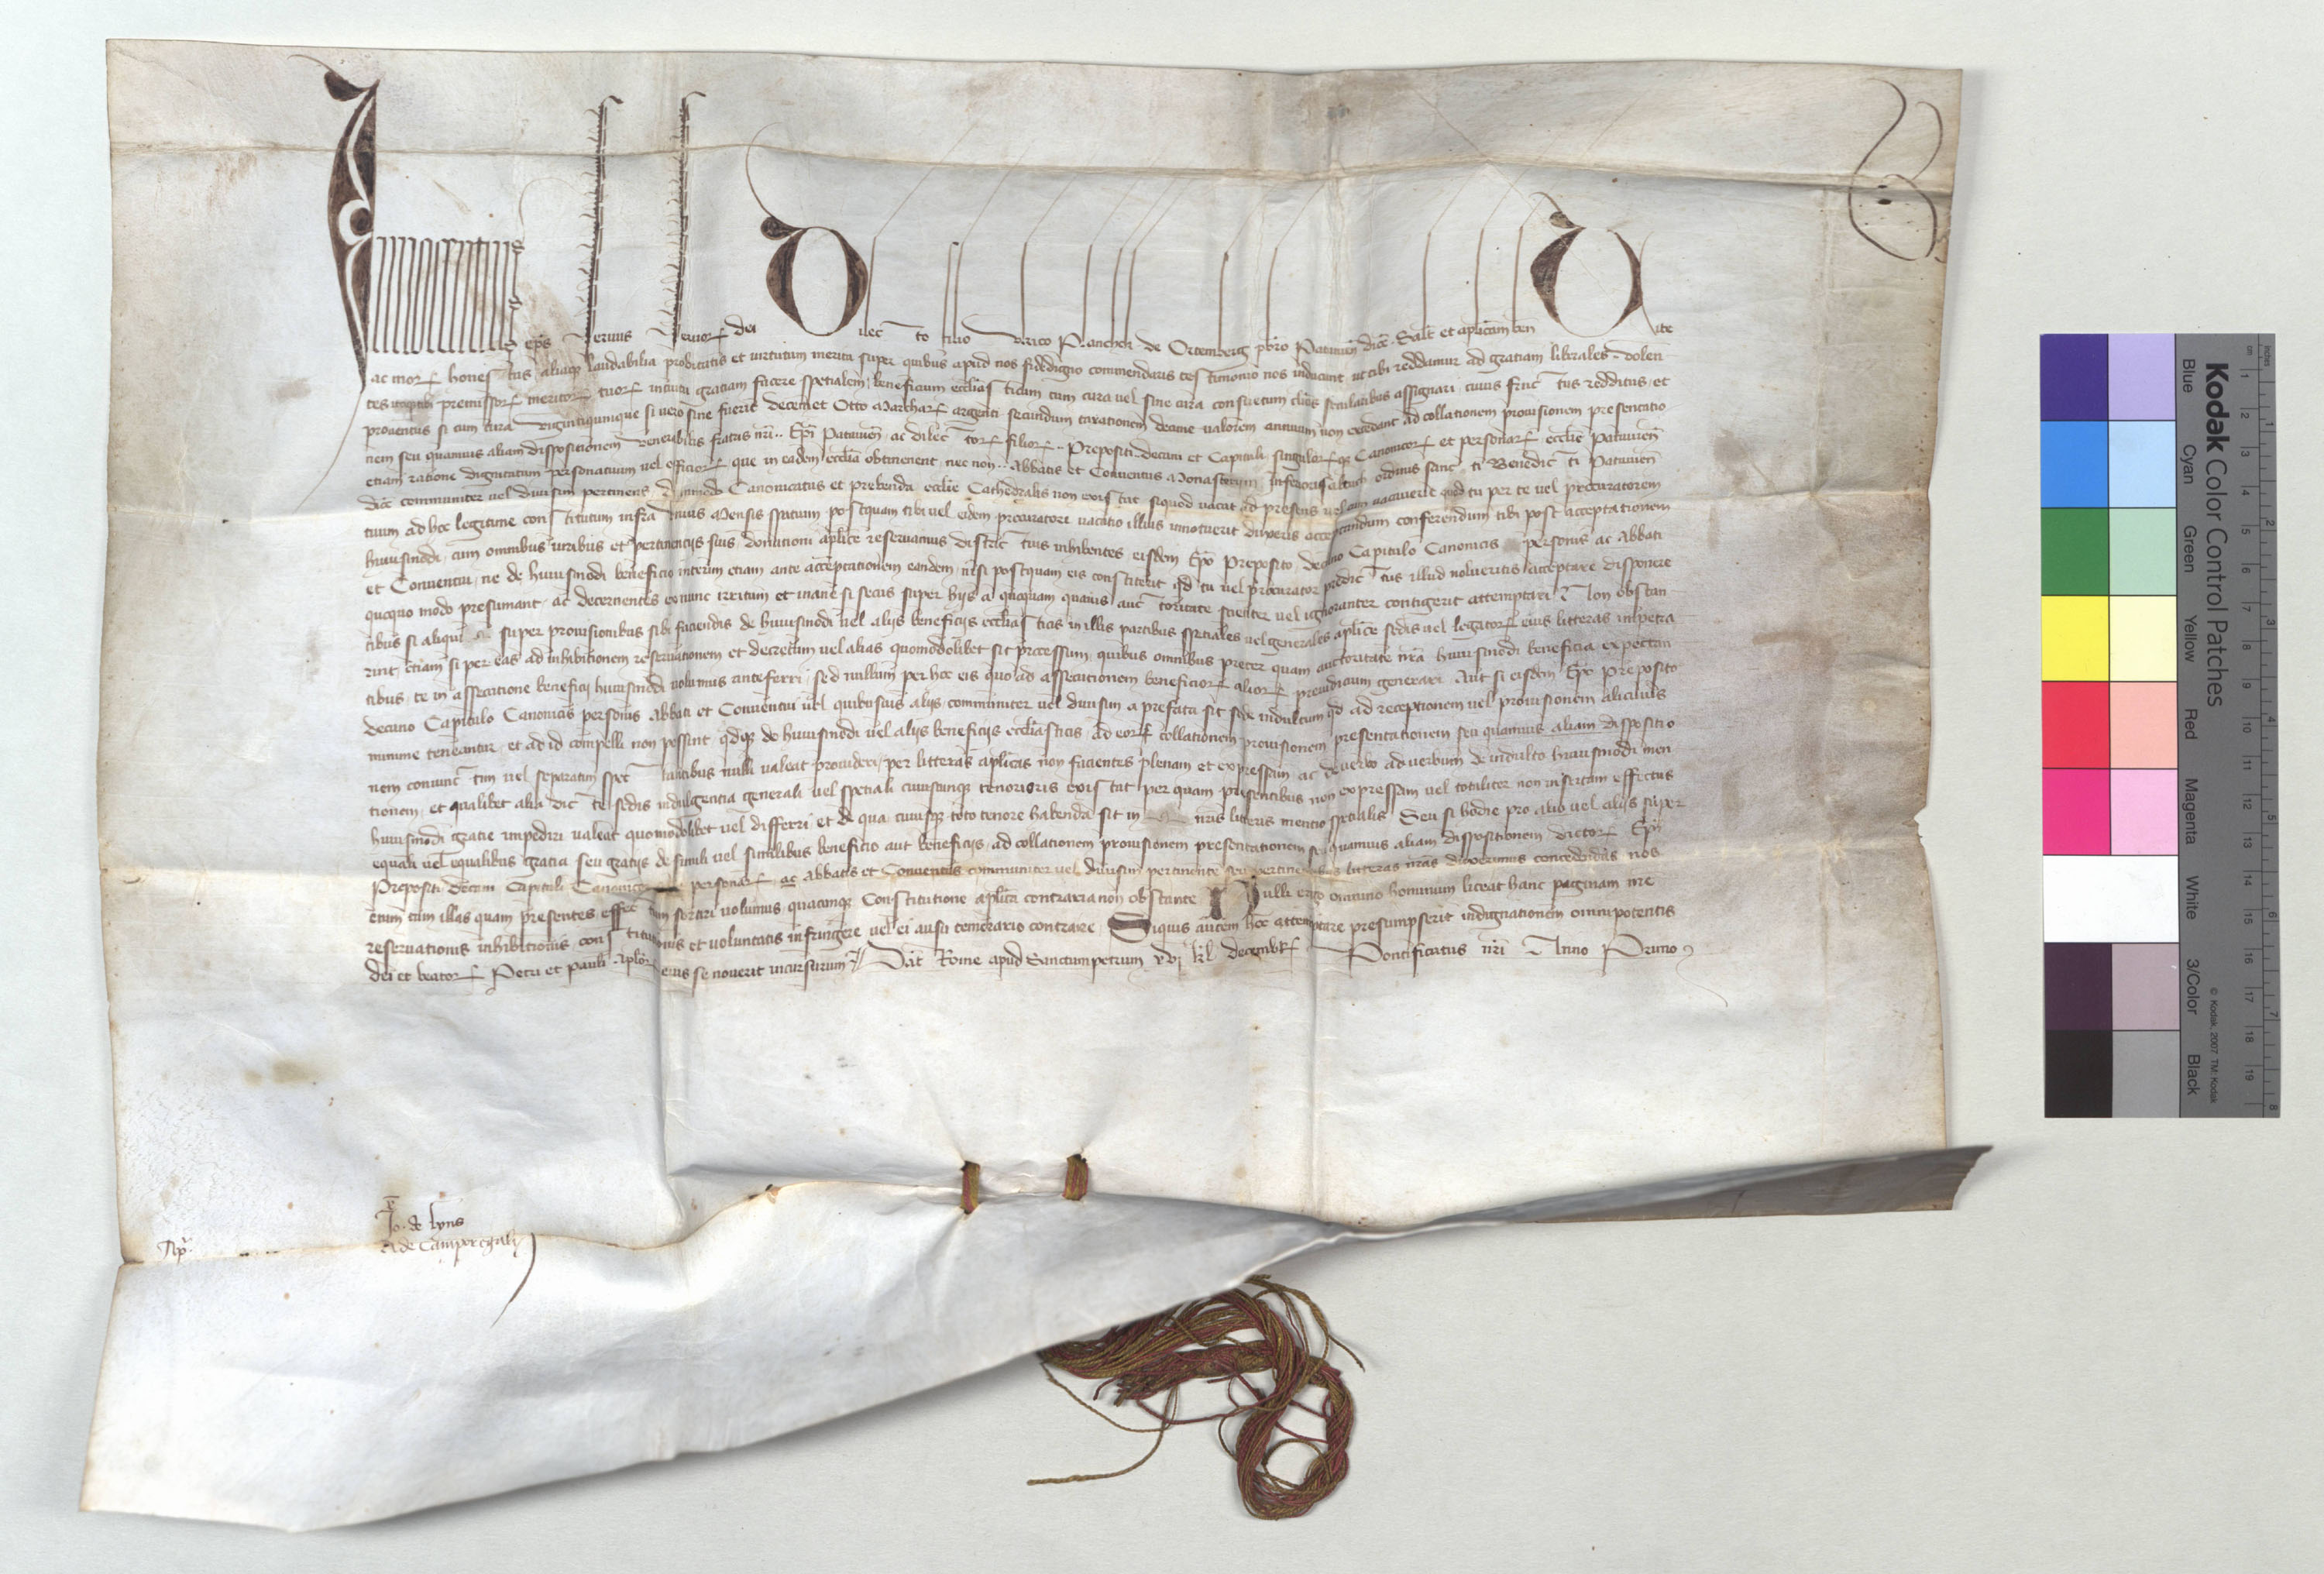 Innocentius ep̄s Seruus Seruorꝝ dei Dilecto filio Vlrico Plancher de Ortemberg pb̄ro Patauien̄ dioc̄ Salt̄ et apl̄icam ben̄ Vite
ac morꝝ honestas aliaqꝫ laudabilia probitatis et uirtutum merita super quibus apud nos fidedigno commendaris testimonio nos inducunt ut tibi reddamur ad gratiam liberales. Volen
tes itaqꝫ tibi premissorꝝ meritorꝝ tuorꝝ intuitu gratiam facere spetialem, beneficium ecclesiasticum cum cura uel sine cura consuetum clericis secularibus assignari, cuius fructus redditus et
prouentus si cum cura Vigintiquinque si uero sine fuerit decemet Otto Marcharꝝ argenti secundum taxationem decime ualorem annuum non excedant ad collationem prouisionem presentatio
nem seu quamuis aliam dispositionem Venerabilis fratris nr̄i .. Ep̄i Patauien̄ ac dilectorꝝ filiorꝝ .. Prepositi .. decani et Capituli singulorꝝqꝫ Canonicorꝝ et personarꝝ ecclie Patauien̄
etiam ratione dignitatum personatuum uel officiorꝝ que in eadem ecclia obtinent, nec non .. Abbatis et Conuentus Monasterii Inferiorisaltach ordinis sancti Benedicti Patauien̄
dioc̄ communiter uel diuisim pertinens, dummodo Canonicatus et prebenda ecclie Cathedralis non existat, siquod uacat ad presens uel cum uacauerit quod tu per te uel procuratorem
tuum ad hoc legitime constitutum infra Vnius Mensis spatium postquam tibi uel eidem procuratori uacatio illius innotuerit duxeris acceptandum conferendum tibi post acceptationem
huiusmodi, cum omnibus iuribus et pertinentijs suis donationi aplice reseruamus districtius inhibentes eisdem Ep̄o Preposito decano Capitulo Canonicis personis ac Abbati
et Conuentui, ne de huiusmodi beneficio interim etiam ante acceptationem eandem, nisi postquam eis constiterit qd̄ tu uel procurator predictus illud nolueritis acceptare disponere
quoquo modo presumant, ac decernentes exnunc irritum et inane si secus super hijs a quoquam quauis auctoritate scienter uel ignoranter contigerit attemptari Non obstan
tibus si aliqui super prouisionibus sibi faciendis de huiusmodi uel alijs beneficijs ecclesiasticis in illis partibus spetiales uel generales aplice sedis uel legatorꝝ eius litteras impetra
rint, etiam si per eas ad inhibitionem reseruationem et decretum uel alias quomodolibet sit processum quibus omnibus preter quam auctoritate nr̄a huiusmodi beneficia expectan
tibus, te in assecutione beneficij huiusmodi uolumus anteferri, sed nullum per hoc eis quo ad assecutionem beneficiorꝝ aliorꝝ preiudicium generari Aut si eisdem Ep̄o Preposito
decano Capitulo Canonicis personis Abbati et Conuentui uel quibusuis alijs communiter uel diuisim a prefata sit sede indultum qd̄ ad receptionem uel prouisionem alicuius
minime teneantur, et ad id compelli non possint, qd̄qꝫ de huiusmodi uel alijs beneficijs ecclesiasticis, ad eorꝝ collationem prouisionem presentationem seu quamuis aliam dispositio
nem coniunctim uel separatim spectantibus nulli ualeat prouideri, per litteras aplicas non facientes plenam et expressam ac de uerbo ad uerbum de indulto huiusmodi men
tionem, et qualibet alia dicte sedis indulgentia generali uel spetiali cuiuscunqꝫ tenoris existat per quam presentibus non expressam uel totaliter non insertam effectus
huiusmodi gratie impediri ualeat quomodolibet uel differri et de qua cuiusqꝫ toto tenore habenda sit in nr̄is litteris mentio spetialis Seu si hodie pro alio uel alijs super
equali uel equalibus gratia seu gratijs de simili uel similibus beneficio aut beneficijs, ad collationem prouisionem presentationem seu quamuis aliam dispositionem dictorꝝ Ep̄i
Prepositi decani Capituli Canonicorꝝ personarꝝ ac Abbatis et Conuentus communiter uel diuisim pertinente seu pertinentibus litteras nr̄as duxerimus concedendas nos
enim tam illas quam presentes effectum sortiri uolumus quacunqꝫ Constitutione aplica contraria non obstante Nulli ergo omnino hominum liceat hanc paginam nr̄e
reseruationis inhibitionis constitutionis et uoluntatis infringere uel ei ausu temerario contraire Siquis autem hoc attemptare presumpserit indignationem omnipotentis
dei et beatorꝝ Petri et pauli Aplorꝝ eius se nouerit incursurum Dat̄ Rome apud Sanctumpetrum xvj kl̄ decembrꝝ Pontificatus nr̄i Anno Primo
Jo. de lyns
A de Camporegali